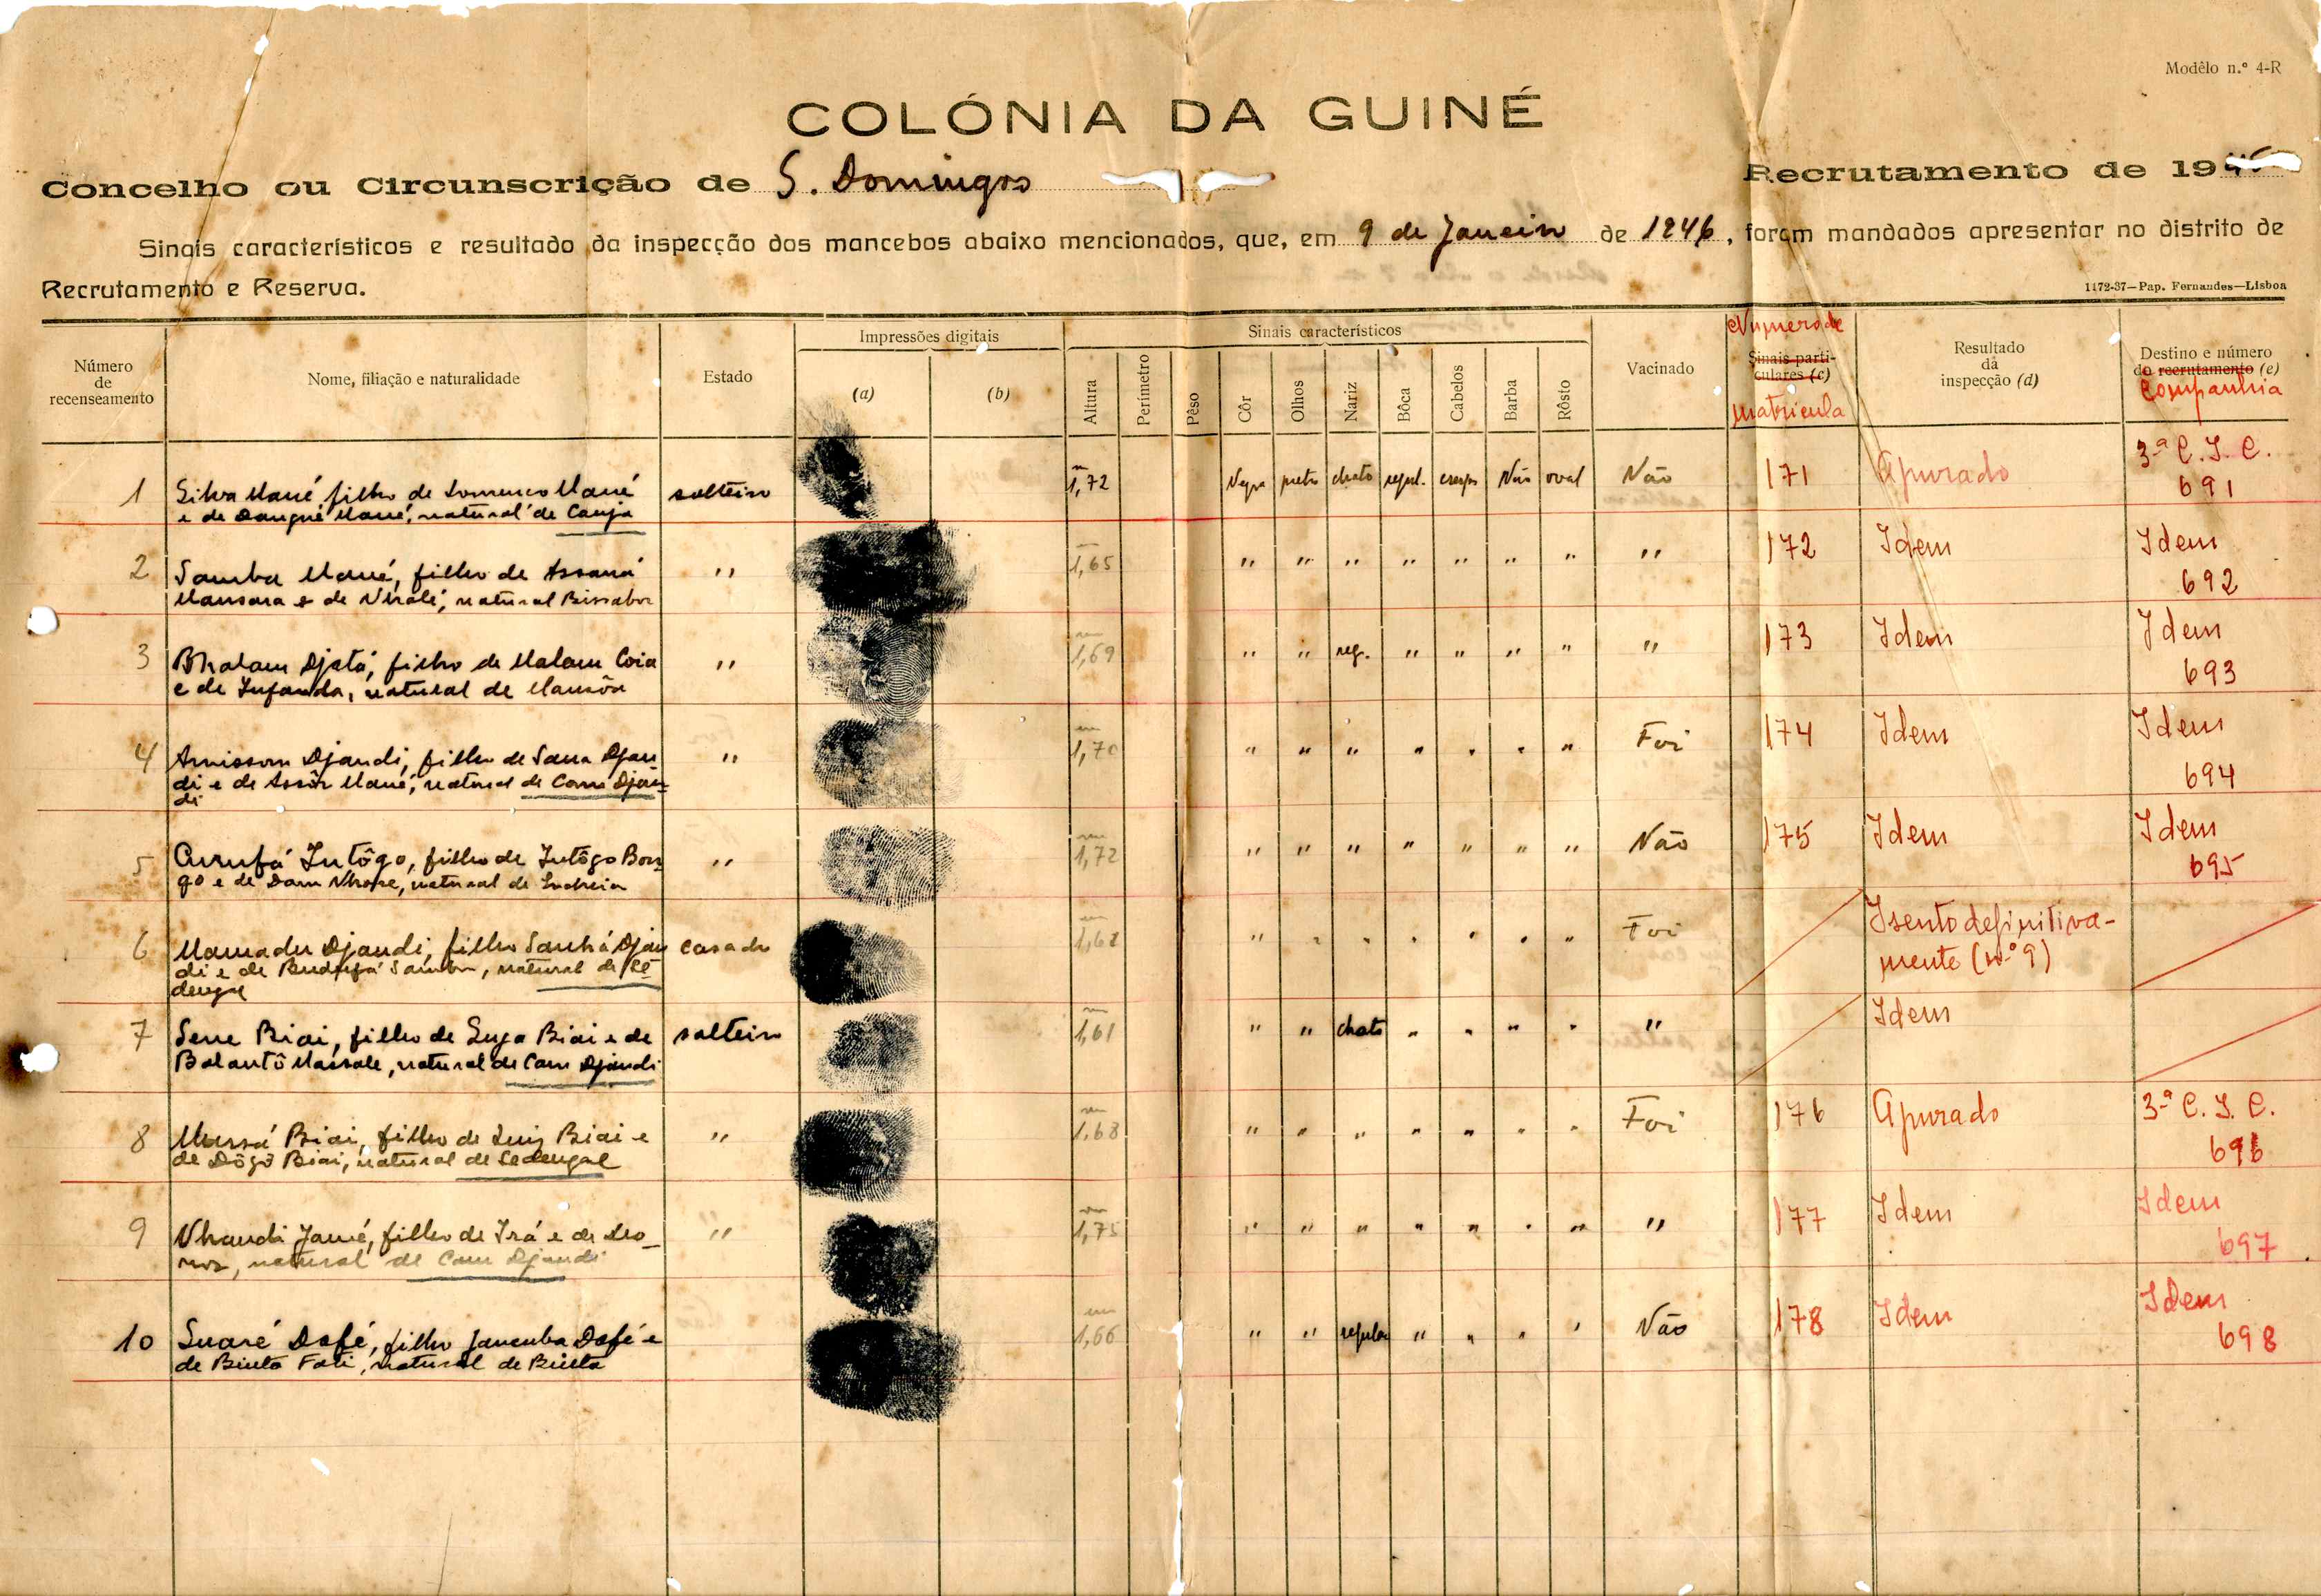 Modêlo n.º 4-R
COLÓNIA DA GUINÉ
Concelho ou Circunscrição de S. Domingos Recrutamento de 19
Sinais característicos e resultado da inspecção dos mancebos abaixo mencionados, que, em 9 de Janeiro de 1946, foram mandados apresentar no distrito de
Recrutamento e Reserva.
1172-37—Pap. Fernandes—Lisboa
Número de recenseamento
Nome, filiação e naturalidade
Estado
Impressões digitais
(a) (b)
Sinais característicos
Altura Perímetro Pêso Côr Olhos Nariz Bôca Cabelos Barba Rôsto
Vacinado
Numero de
Sinais parti-
culares (c)
matricula
Resultado
da
inspecção (d)
Destino e número
do recrutamento (e)
Companhia
1 Silva Mané filho de Lourenço Mané solteiro 1,72 Negra preto chato regul. crespo Não oval Não 171 Apurado 3-ª C. I. C.
e de Mané, natural de Canja 691
2 Samba Mané, filho de Assaná " 1,65 " " " " " " " " 172 Idem Idem
Mansara e de Nhalé, natural 692
3 Djatá, filho de Malam Coia " 1,69 " " reg. " " " " " 173 Idem Idem
e de natural de Mansôa 693
4 Djandi, filho de Sana Djan " 1,70 " " " " " " " Foi 174 Idem Idem
di e de Mané, natural de Cam Djan- 694
di
5 Intôgo, filho de Intôgo Bon- " 1,72 " " " " " " " Não 175 Idem Idem
go e de Dam natural de 695
6 Mamadu Djandi, filho Sanhá Djan casado 1,62 " " " " " " " Foi Isento definitiva-
di e de natural de Se- mente (n.º 9)
dengal
7 Sene Biai, filho de Biai e de solteiro 1,61 " " chato " " " " " Idem
Balantô natural de Cam Djandi
8 Mussá Biai, filho de Luiz Biai e " 1,68 " " " " " " " Foi 176 Apurado 3-ª C. I. C.
de Dôgô Biai, natural de Sedengal 696
9 Jamé, filho de Irá e de " 1,75 " " " " " " " " 177 Idem Idem
natural de Cam Djandi 697
10 Suaré Dafé, filho Jancuba Dafé e 1,66 " " regular " " " " Não 178 Idem Idem
de Binta Fati, natural de Binta 698